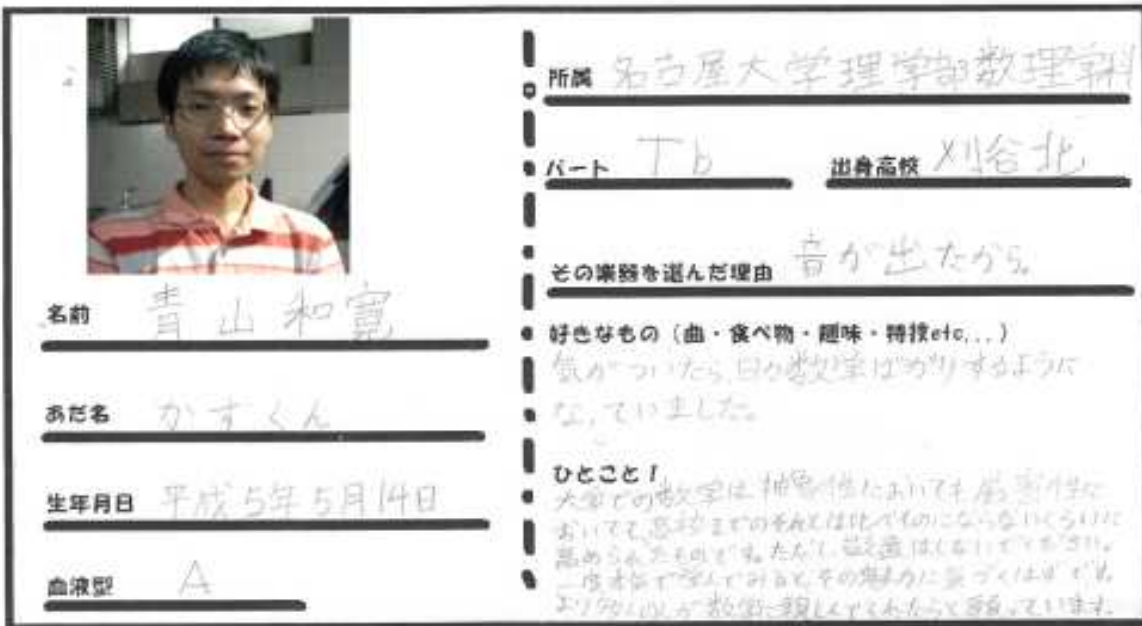 名前 青山和寛
あだ名 かずくん
生年月日 平成5年5月14日
血液型 A
所属 名古屋大学理学部数理学科
パート Tb 出身高校 刈谷北
その楽器を選んだ理由 音が出たから。
好きなもの（曲・食べ物・趣味・特技etc...）
気がついたら、日々数学ばかりするように
なっていました。
ひとこと！
大学での数学は抽象性においても厳密性に
おいても高校までのそれとは比べものにならないくらいに
高められたものです。ただし、敬遠はしないでください。
一度本気で学んでみると、その魅力に気づくはずです。
より多くの人が数学に親しんでくれたらと願っています。